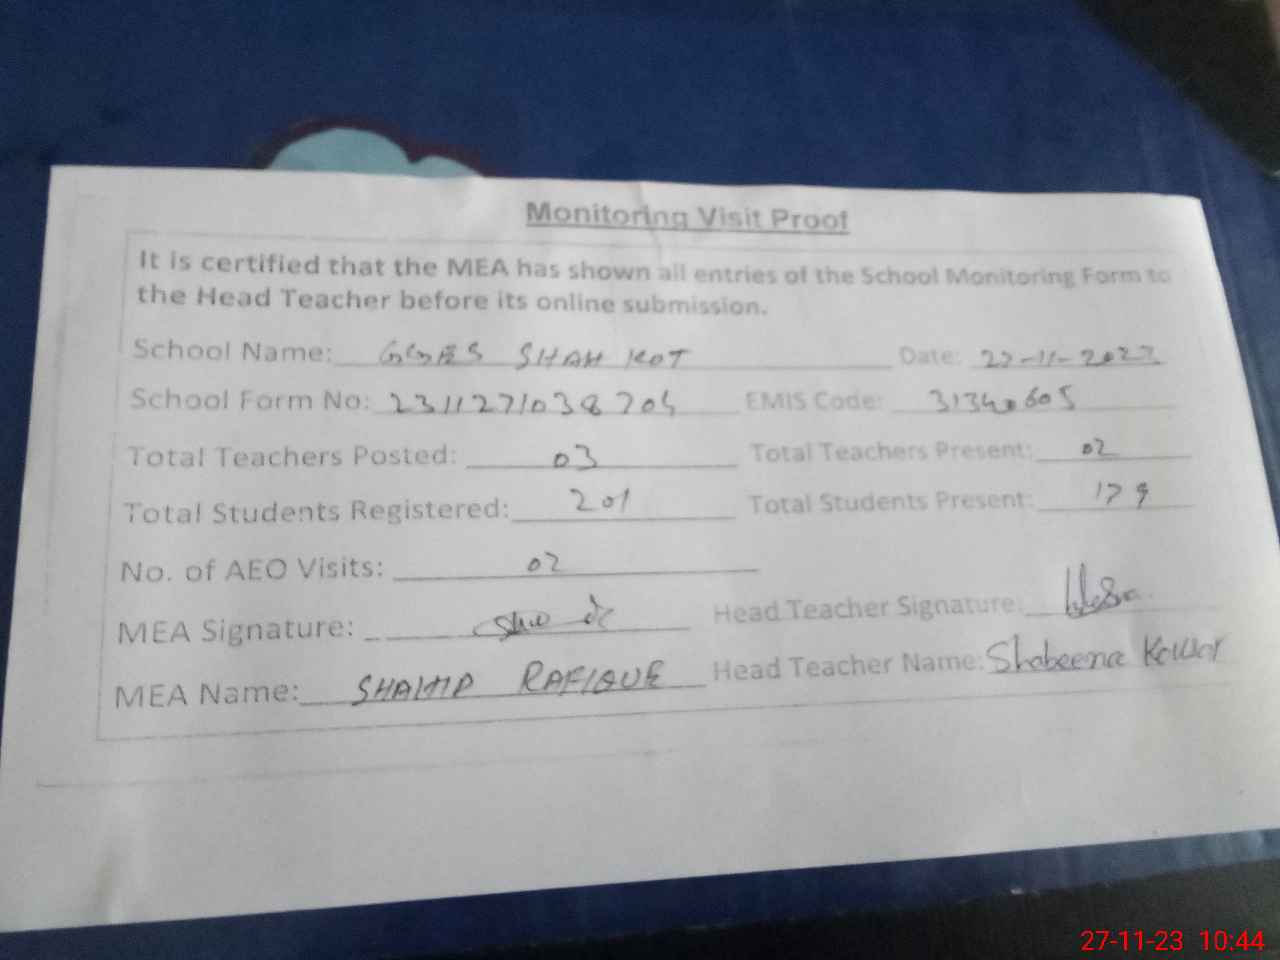 Monitoring Visit Proof
It is certified that the MEA has shown all entries of the School Monitoring Form to
the Head Teacher before its online submission.
School Name: SHAH KOT Date:
School Form No: EMIS Code:
Total Teachers Posted: 03 Total Teachers Present: 02
Total Students Registered: 201 Total Students Present: 179
No. of AEO Visits: 02
MEA Signature: Head Teacher Signature:
MEA Name: RAFIQUE Head Teacher Name: Shabeena Kousar
27-11-23 10:44